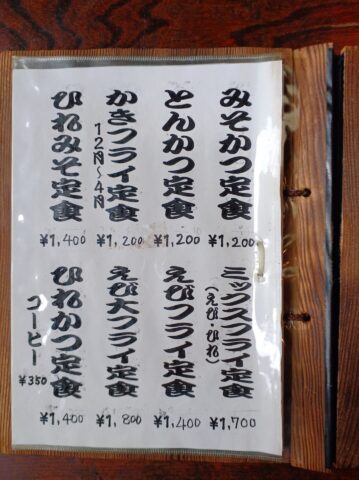 みそかつ定食
¥1,200
とんかつ定食
¥1,200
かきフライ定食
12月〜4月
¥1,200
ひれみそ定食
¥1,400
ミックスフライ定食
(えび・ひれ)
¥1,700
えびフライ定食
¥1,400
えび大フライ定食
¥1,800
ひれかつ定食
¥1,400
コーヒー
¥350